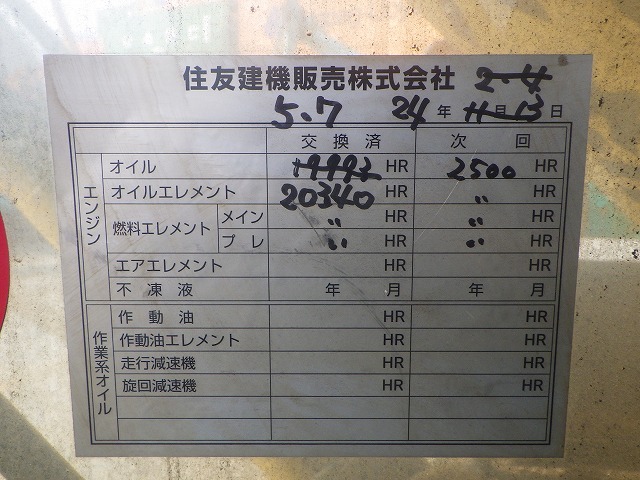 住友建機販売株式会社 2.4
5.7 24年 11月13日
交換済 次回
エンジン オイル 19993 HR 2500 HR
オイルエレメント 20340 HR 〃 HR
燃料エレメント メイン 〃 HR 〃 HR
プレ 〃 HR 〃 HR
エアエレメント HR HR
不凍液 年 月 年 月
作業系オイル 作動油 HR HR
作動油エレメント HR HR
走行減速機 HR HR
旋回減速機 HR HR